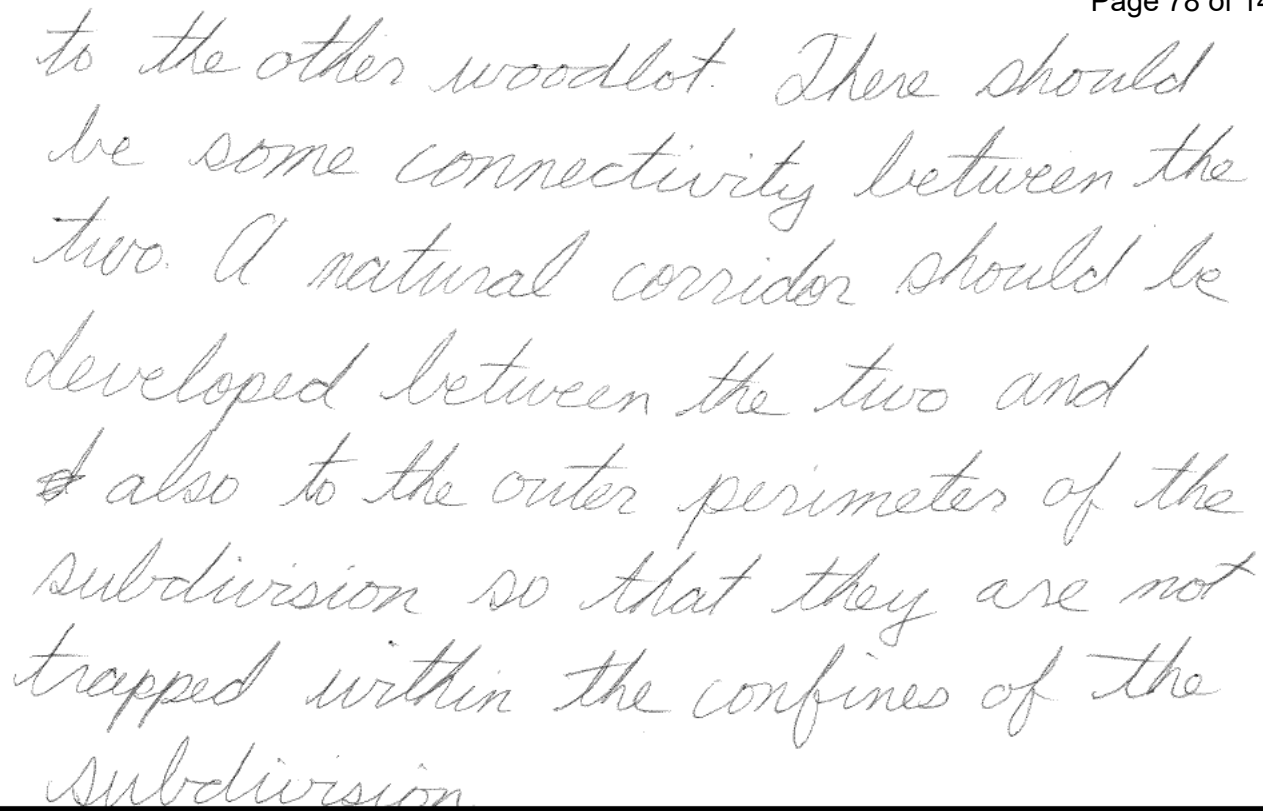 Page 78 of 14
to the other woodlot. There should
be some connectivity between the
two. A natural corridor should be
developed between the two and
also to the outer perimeter of the
subdivision so that they are not
trapped within the confines of the
subdivision